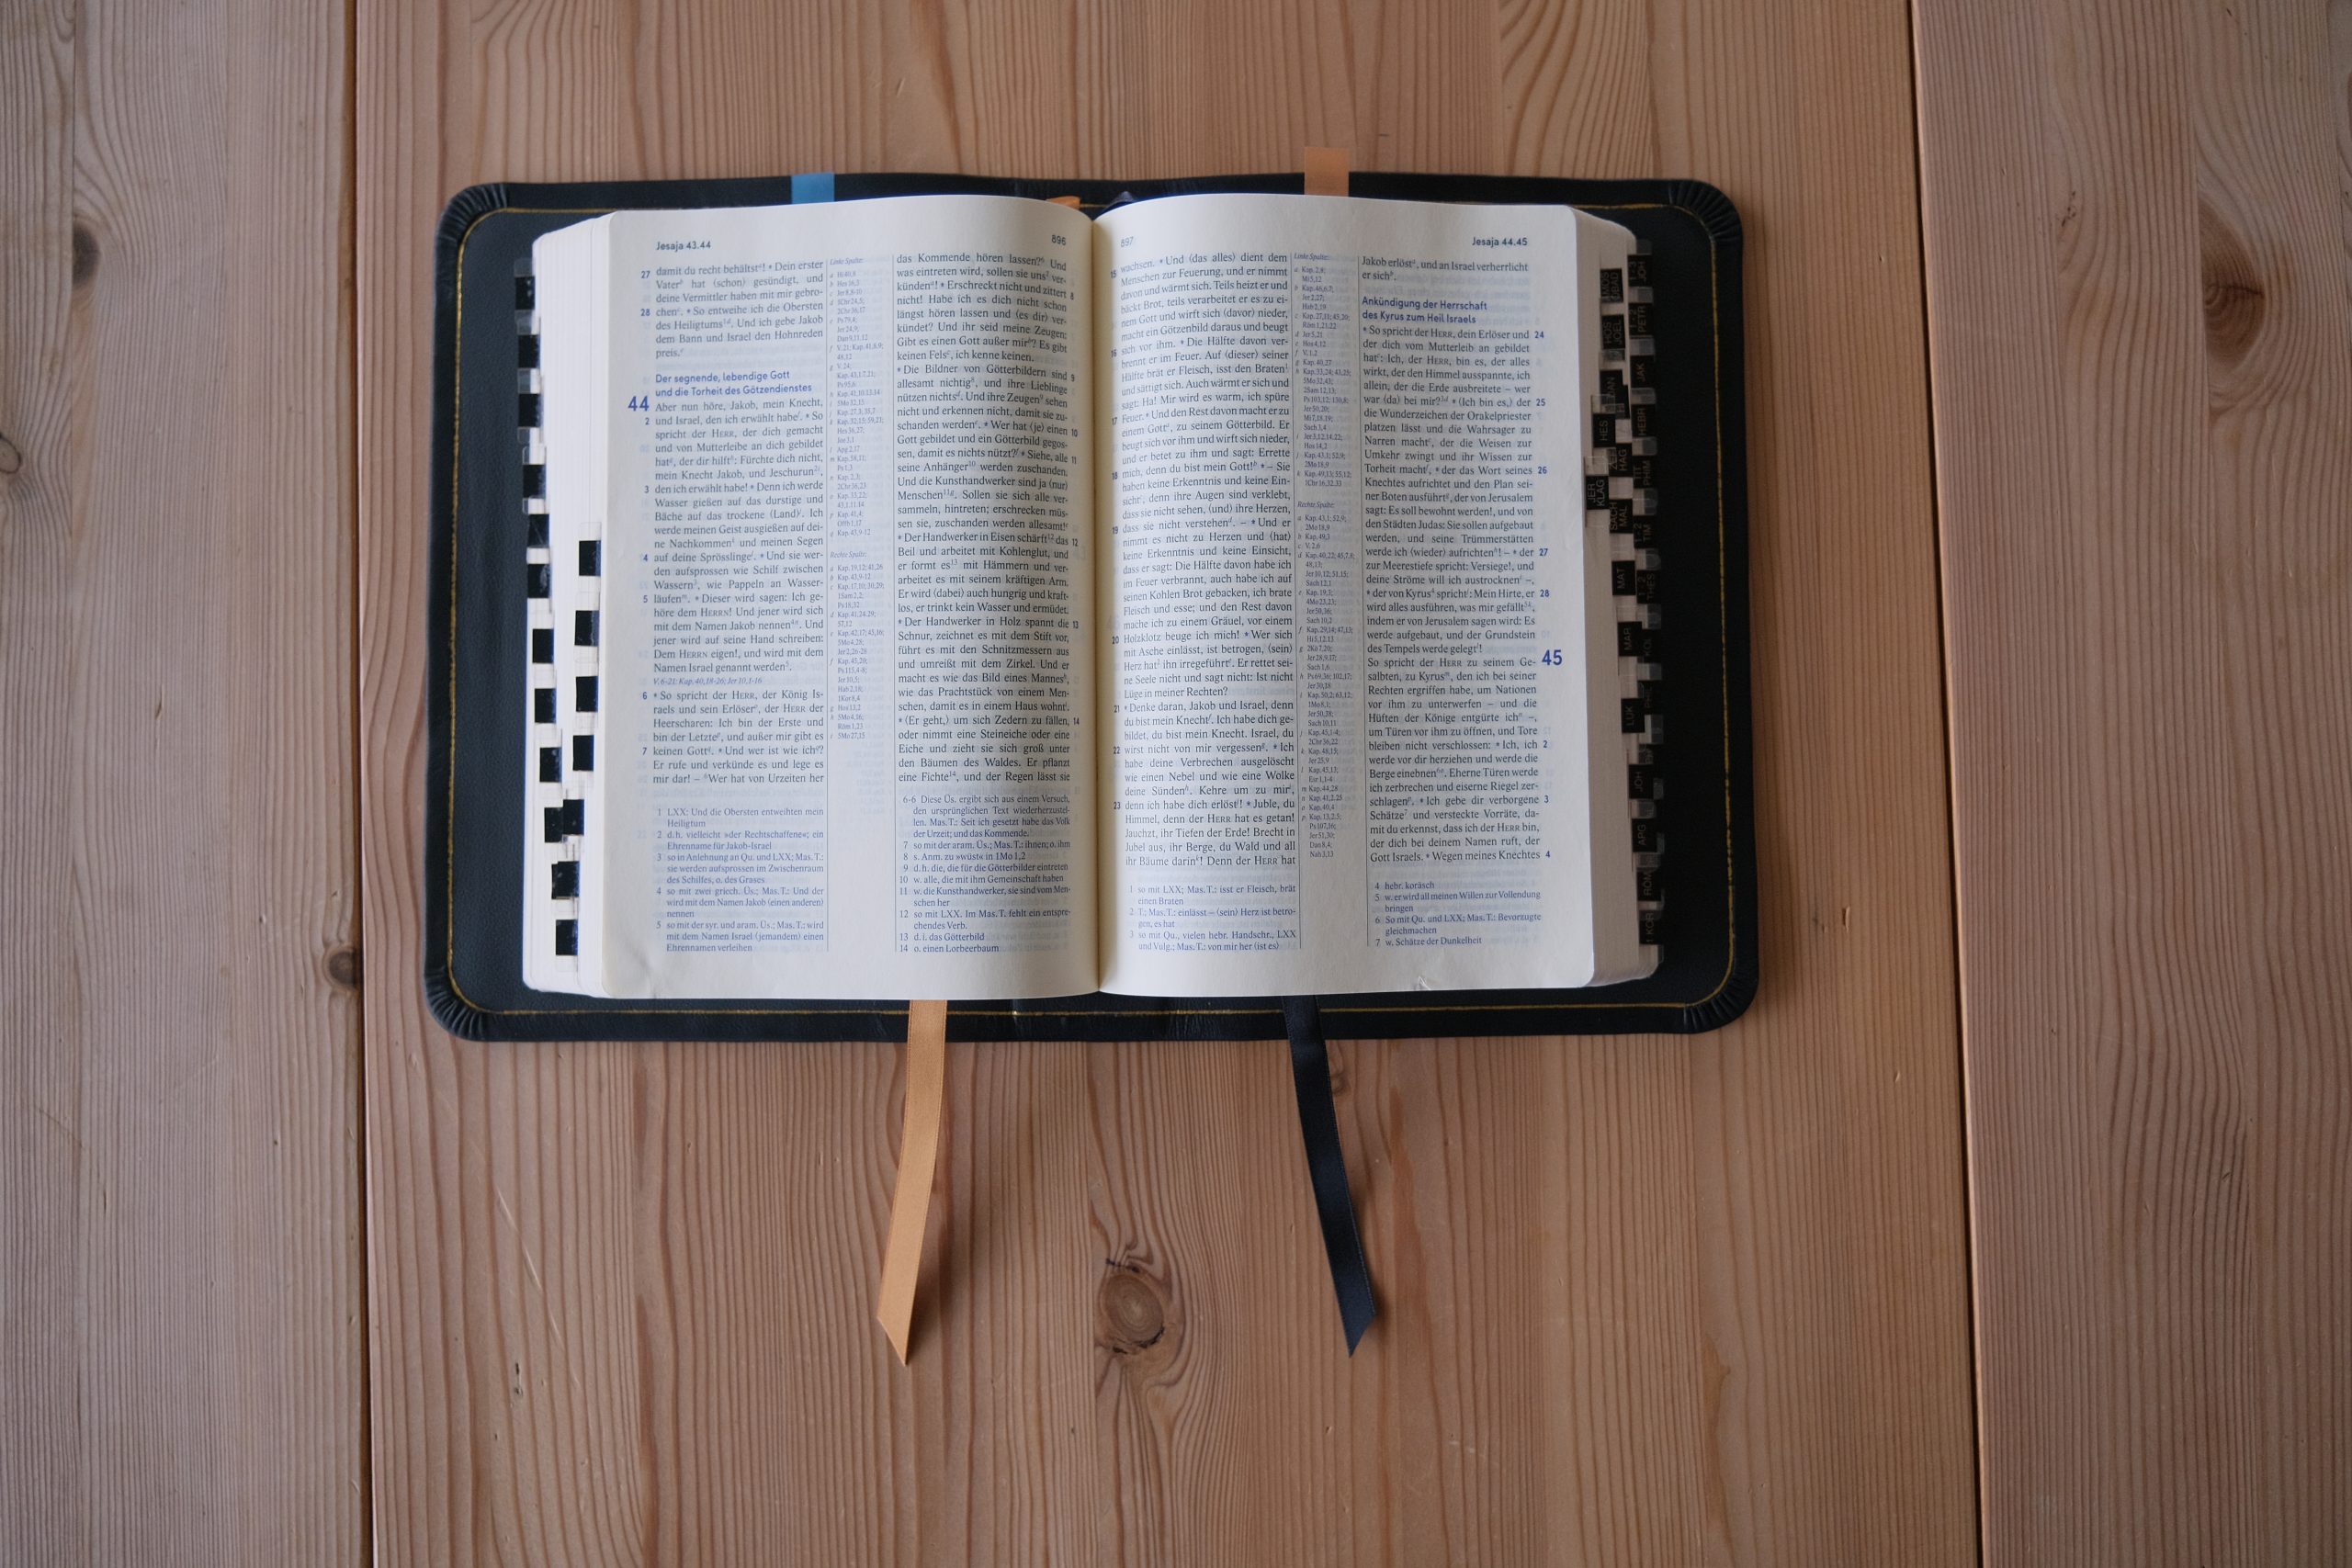 Jesaja 43.44
896
27 damit du recht behältst! * Dein erster
Vater hat ⟨schon⟩ gesündigt, und
deine Vermittler haben mit mir gebro-
28 chen. * So entweihe ich die Obersten
des Heiligtums. Und ich gebe Jakob
dem Bann und Israel den Hohnreden
preis.
Der segnende, lebendige Gott
und die Torheit des Götzendienstes
44 Aber nun höre, Jakob, mein Knecht,
2 und Israel, den ich erwählt habe. * So
spricht der HERR, der dich gemacht
und von Mutterleibe an dich gebildet
hat, der dir hilft: Fürchte dich nicht,
mein Knecht Jakob, und Jeschurun,
3 den ich erwählt habe! * Denn ich werde
Wasser gießen auf das durstige und
Bäche auf das trockene ⟨Land⟩. Ich
werde meinen Geist ausgießen auf dei-
ne Nachkommen und meinen Segen
4 auf deine Sprösslinge. * Und sie wer-
den aufsprossen wie Schilf zwischen
Wassern, wie Pappeln an Wasser-
5 läufen. * Dieser wird sagen: Ich ge-
höre dem HERRN! Und jener wird sich
mit dem Namen Jakob nennen. Und
jener wird auf seine Hand schreiben:
Dem HERRN eigen!, und wird mit dem
Namen Israel genannt werden.
V.6-21: Kap.40,18-26; Jer 10,1-16
6 * So spricht der HERR, der König Is-
raels und sein Erlöser, der HERR der
Heerscharen: Ich bin der Erste und
bin der Letzte, und außer mir gibt es
7 keinen Gott. * Und wer ist wie ich?
Er rufe und verkünde es und lege es
mir dar! – Wer hat von Urzeiten her
1 LXX; Und die Obersten entweihten mein
Heiligtum
2 d.h. vielleicht »der Rechtschaffene«; ein
Ehrenname für Jakob-Israel
3 so in Anlehnung an Qu. und LXX; Mas.T.:
sie werden aufsprossen im Zwischenraum
des Schilfes, o. des Grases
4 so mit zwei griech. Üs.; Mas.T.: Und der
wird mit dem Namen Jakob ⟨einen anderen⟩
nennen
5 so mit der syr. und aram. Üs.; Mas.T.: wird
mit dem Namen Israel ⟨jemandem⟩ einen
Ehrennamen verleihen
Linke Spalte:
Rechte Spalte:
das Kommende hören lassen? Und
was eintreten wird, sollen sie uns ver-
künden! * Erschreckt nicht und zittert 8
nicht! Habe ich es dich nicht schon
längst hören lassen und ⟨es dir⟩ ver-
kündet? Und ihr seid meine Zeugen:
Gibt es einen Gott außer mir? Es gibt
keinen Fels, ich kenne keinen.
* Die Bildner von Götterbildern sind 9
allesamt nichtig, und ihre Lieblinge
nützen nichts. Und ihre Zeugen sehen
nicht und erkennen nicht, damit sie zu-
schanden werden. * Wer hat ⟨je⟩ einen 10
Gott gebildet und ein Götterbild gegos-
sen, damit es nichts nützt? * Siehe, alle 11
seine Anhänger werden zuschanden.
Und die Kunsthandwerker sind ja ⟨nur⟩
Menschen. Sollen sie sich alle ver-
sammeln, hintreten; erschrecken müs-
sen sie, zuschanden werden allesamt!
* Der Handwerker in Eisen schärft das 12
Beil und arbeitet mit Kohlenglut, und
er formt es mit Hämmern und ver-
arbeitet es mit seinem kräftigen Arm.
Er wird ⟨dabei⟩ auch hungrig und kraft-
los, er trinkt kein Wasser und ermüdet.
* Der Handwerker in Holz spannt die 13
Schnur, zeichnet es mit dem Stift vor,
führt es mit den Schnitzmessern aus
und umreißt mit dem Zirkel. Und er
macht es wie das Bild eines Mannes,
wie das Prachtstück von einem Men-
schen, damit es in einem Haus wohnt.
* ⟨Er geht,⟩ um sich Zedern zu fällen, 14
oder nimmt eine Steineiche oder eine
Eiche und zieht sie sich groß unter
den Bäumen des Waldes. Er pflanzt
eine Fichte, und der Regen lässt sie
6-6 Diese Üs. ergibt sich aus einem Versuch,
den ursprünglichen Text wiederherzustel-
len. Mas.T.: Seit ich gesetzt habe das Volk
der Urzeit; und das Kommende.
7 so mit der aram. Üs.; Mas.T.: ihnen; o. ihm
8 s. Anm. zu »wüst« in 1Mo 1,2
9 d.h. die, die für die Götterbilder eintreten
10 w. alle, die mit ihm Gemeinschaft haben
11 w. die Kunsthandwerker, sie sind vom Men-
schen her
12 so mit LXX. Im Mas.T. fehlt ein entspre-
chendes Verb.
13 d.i. das Götterbild
14 o. einen Lorbeerbaum
897
Jesaja 44.45
15 wachsen. * Und ⟨das alles⟩ dient dem
Menschen zur Feuerung, und er nimmt
davon und wärmt sich. Teils heizt er und
bäckt Brot, teils verarbeitet er es zu ei-
nem Gott und wirft sich ⟨davor⟩ nieder,
macht ein Götzenbild daraus und beugt
16 sich vor ihm. * Die Hälfte davon ver-
brennt er im Feuer. Auf ⟨dieser⟩ seiner
Hälfte brät er Fleisch, isst den Braten
und sättigt sich. Auch wärmt er sich und
sagt: Ha! Mir wird es warm, ich spüre
17 Feuer. * Und den Rest davon macht er zu
einem Gott, zu seinem Götterbild. Er
beugt sich vor ihm und wirft sich nieder,
und er betet zu ihm und sagt: Errette
18 mich, denn du bist mein Gott! * – Sie
haben keine Erkenntnis und keine Ein-
sicht, denn ihre Augen sind verklebt,
dass sie nicht sehen, ⟨und⟩ ihre Herzen,
19 dass sie nicht verstehen. – * Und er
nimmt es nicht zu Herzen und ⟨hat⟩
keine Erkenntnis und keine Einsicht,
dass er sagt: Die Hälfte davon habe ich
im Feuer verbrannt, auch habe ich auf
seinen Kohlen Brot gebacken, ich brate
Fleisch und esse; und den Rest davon
mache ich zu einem Gräuel, vor einem
20 Holzklotz beuge ich mich! * Wer sich
mit Asche einlässt, ist betrogen, ⟨sein⟩
Herz hat ihn irregeführt. Er rettet sei-
ne Seele nicht und sagt nicht: Ist nicht
Lüge in meiner Rechten?
21 * Denke daran, Jakob und Israel, denn
du bist mein Knecht. Ich habe dich ge-
bildet, du bist mein Knecht. Israel, du
22 wirst nicht von mir vergessen. * Ich
habe deine Verbrechen ausgelöscht
wie einen Nebel und wie eine Wolke
deine Sünden. Kehre um zu mir,
23 denn ich habe dich erlöst! * Juble, du
Himmel, denn der HERR hat es getan!
Jauchzt, ihr Tiefen der Erde! Brecht in
Jubel aus, ihr Berge, du Wald und all
ihr Bäume darin! Denn der HERR hat
1 so mit LXX; Mas.T.: isst er Fleisch, brät
einen Braten
2 T.; Mas.T.: einlässt – ⟨sein⟩ Herz ist betro-
gen, es hat
3 so mit Qu., vielen hebr. Handschr., LXX
und Vulg.; Mas.T.: von mir her ⟨ist es⟩
Linke Spalte:
Rechte Spalte:
Jakob erlöst, und an Israel verherrlicht
er sich.
Ankündigung der Herrschaft
des Kyrus zum Heil Israels
* So spricht der HERR, dein Erlöser und 24
der dich vom Mutterleib an gebildet
hat: Ich, der HERR, bin es, der alles
wirkt, der den Himmel ausspannte, ich
allein, der die Erde ausbreitete – wer
war ⟨da⟩ bei mir? * ⟨Ich bin es,⟩ der 25
die Wunderzeichen der Orakelpriester
platzen lässt und die Wahrsager zu
Narren macht, der die Weisen zur
Umkehr zwingt und ihr Wissen zur
Torheit macht, * der das Wort seines 26
Knechtes aufrichtet und den Plan sei-
ner Boten ausführt, der von Jerusalem
sagt: Es soll bewohnt werden!, und von
den Städten Judas: Sie sollen aufgebaut
werden, und seine Trümmerstätten
werde ich ⟨wieder⟩ aufrichten! – * der 27
zur Meerestiefe spricht: Versiege!, und
deine Ströme will ich austrocknen –,
* der von Kyrus spricht: Mein Hirte, er 28
wird alles ausführen, was mir gefällt,
indem er von Jerusalem sagen wird: Es
werde aufgebaut, und der Grundstein
des Tempels werde gelegt!
So spricht der HERR zu seinem Ge- 45
salbten, zu Kyrus, den ich bei seiner
Rechten ergriffen habe, um Nationen
vor ihm zu unterwerfen – und die
Hüften der Könige entgürte ich –,
um Türen vor ihm zu öffnen, und Tore
bleiben nicht verschlossen: * Ich, ich 2
werde vor dir herziehen und werde die
Berge einebnen. Eherne Türen werde
ich zerbrechen und eiserne Riegel zer-
schlagen. * Ich gebe dir verborgene 3
Schätze und versteckte Vorräte, da-
mit du erkennst, dass ich der HERR bin,
der dich bei deinem Namen ruft, der
Gott Israels. * Wegen meines Knechtes 4
4 hebr. koräsch
5 w. er wird all meinen Willen zur Vollendung
bringen
6 So mit Qu. und LXX; Mas.T.: Bevorzugte
gleichmachen
7 w. Schätze der Dunkelheit
HES
JER
KLAG
MAT
MAR
LUK
JOH
APG
RÖM
1 KOR
JAK
HEBR